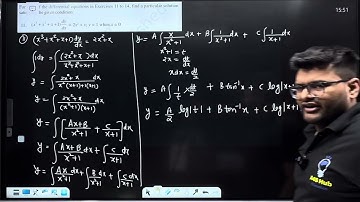 15:51
For the differential equations in Exercises 11 to 14, find a particular solution
(x³ + x² + x + 1) dy/dx = 2x² + x; y = 1 when x = 0
(x³+x²+x+1) dy/dx = 2x²+x
∫dy = ∫ (2x²+x)dx / (x³+x²+x+1)
y = ∫ (2x²+x)dx / (x²(x+1)+1(x+1))
y = ∫ (2x²+x)dx / (x²+1)(x+1)
y = ∫ [Ax+B / x²+1 + C / x+1] dx
y = ∫ Ax+B / x²+1 dx + ∫ C / x+1 dx
y = ∫ Ax / x²+1 dx + ∫ B / x²+1 dx + ∫ C / x+1 dx
y = A∫ x / x²+1 dx + B∫ 1 / x²+1 dx + C∫ 1 / x+1 dx
x²+1 = t
2x = dt/dx
xdx = dt/2
y = A∫ 1/t dt/2 + B tan⁻¹x + C log|x+
y = A/2 log|t| + B tan⁻¹x + C log|x+